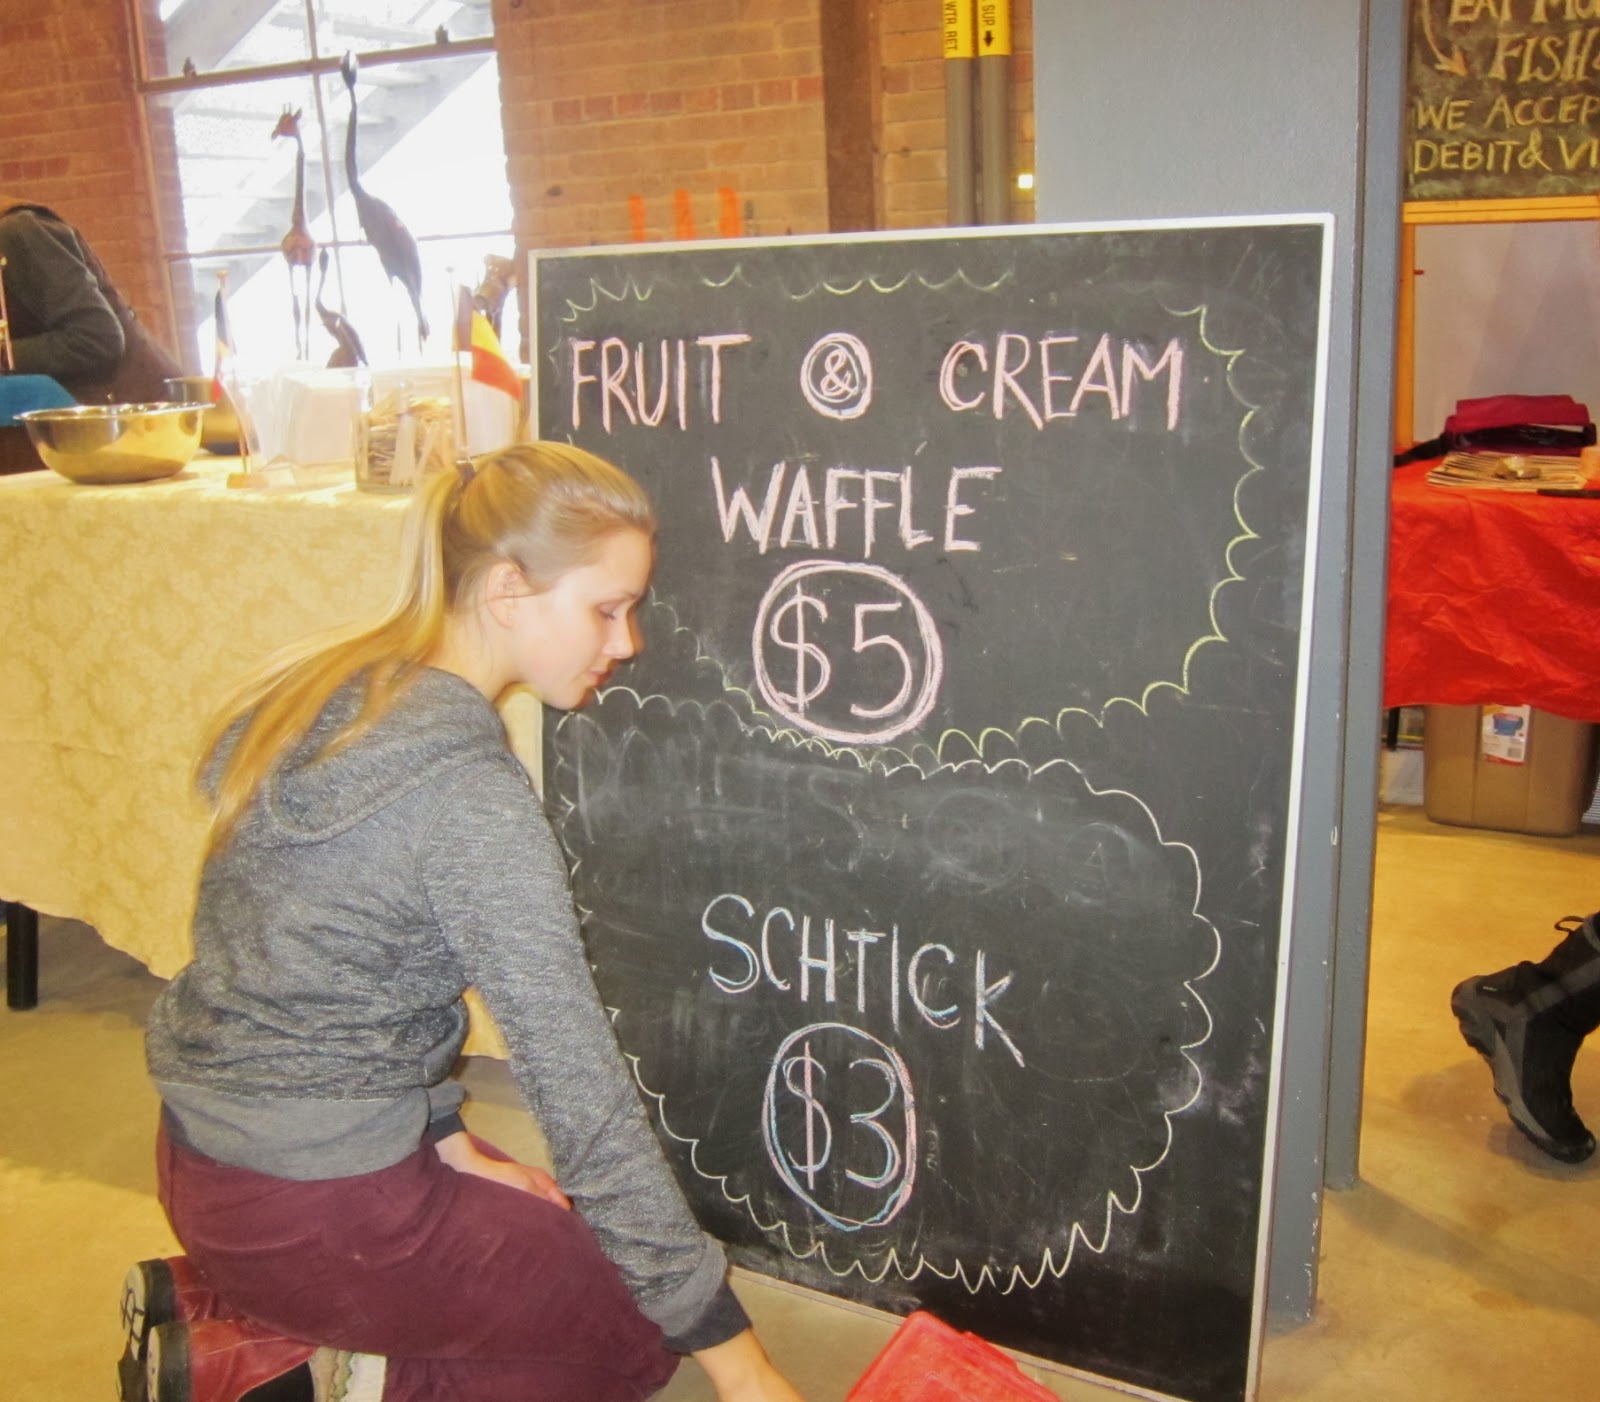 WTR RET.
SUP.
EAT MO
FISH &
WE ACCEP
DEBIT & VI
FRUIT & CREAM
WAFFLE
$5
ON A
SCHTICK
$3